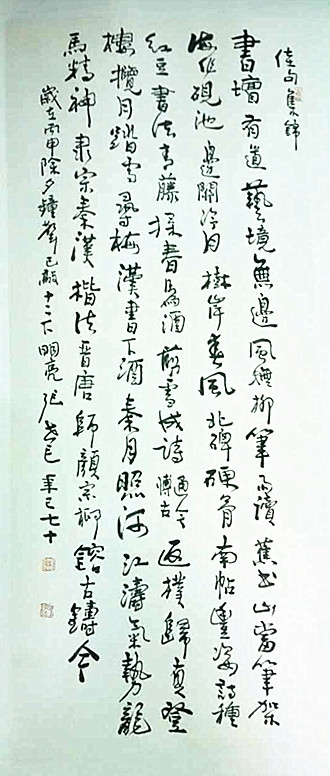 佳句集錦
書壇有道藝境無邊風柳筆雨讀蕉書山當筆架
海作硯池邊關冷月岸春風北碑硬骨南帖豐姿詩種
紅豆書法青藤採春為酒剪雪成詩通今博古返樸歸真登
樓攬月踏雪尋梅漢書下酒秦月照河江濤氣勢龍
馬精神隶宗秦漢楷法晋唐師顏宗柳鎔古鑄今
歲在丙申除夕鐘聲已敲十二下明亮张年已七十